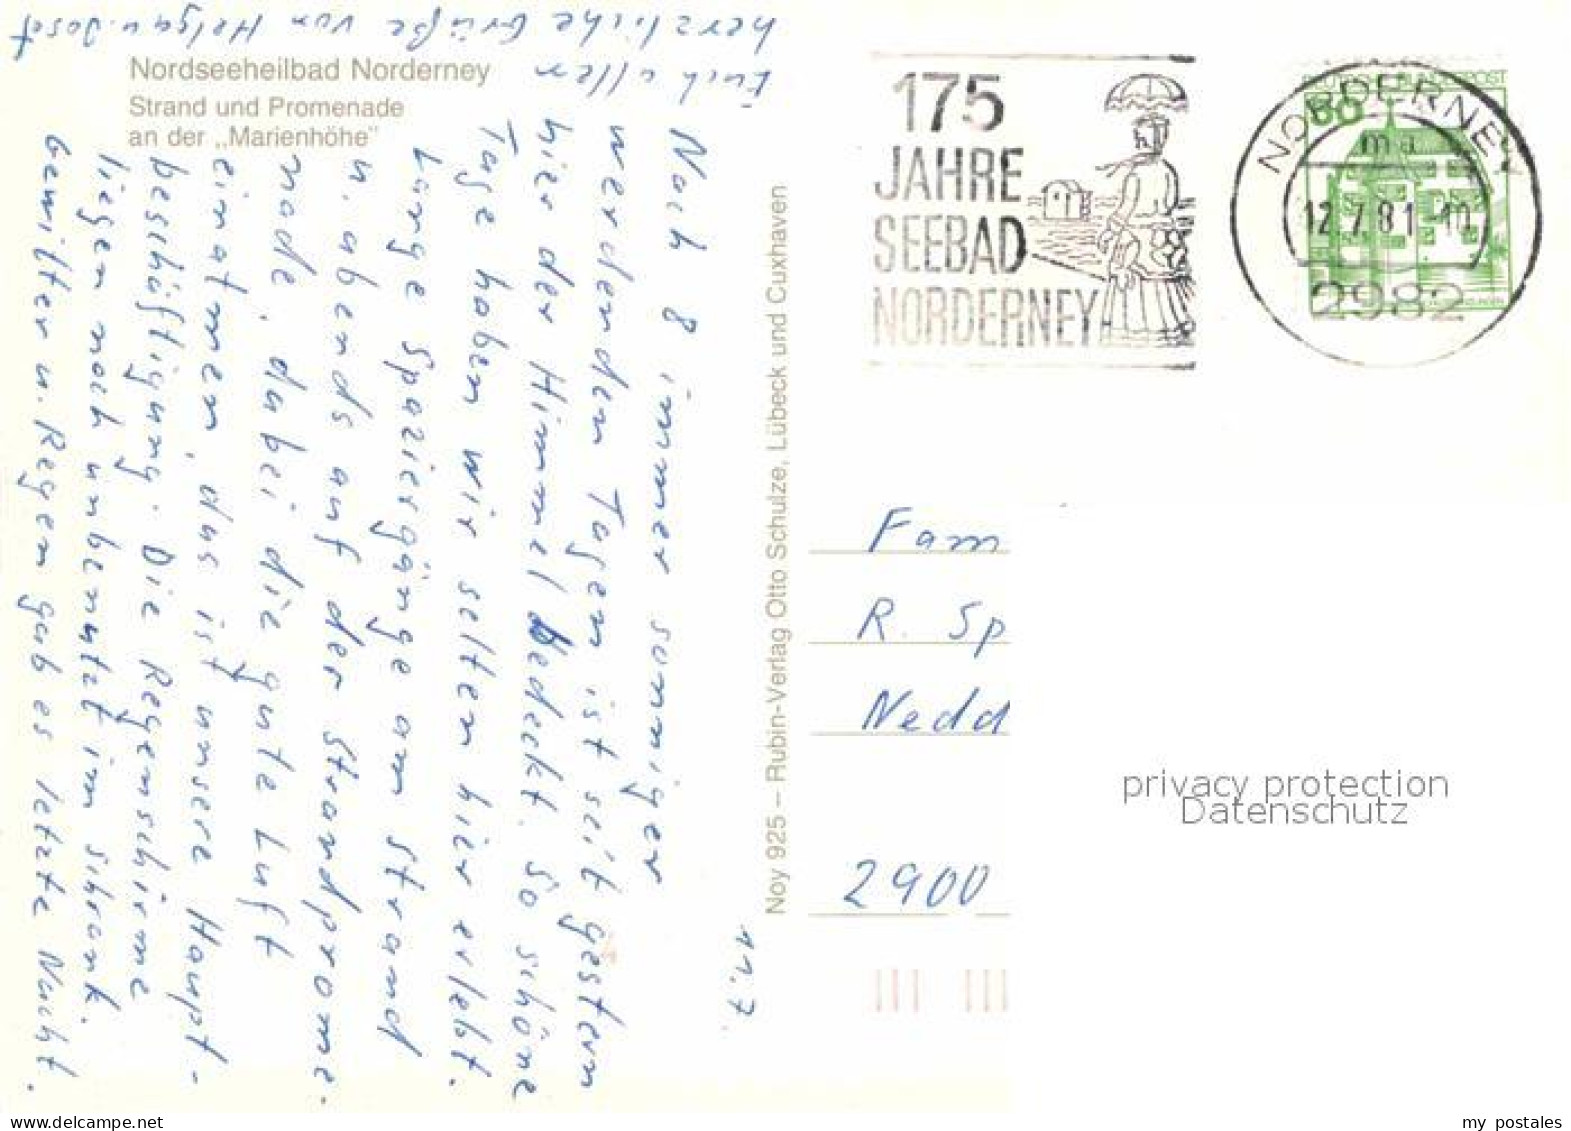 Nordseeheilbad Norderney
Strand und Promenade
an der „Marienhöhe"
11.7.
Noch 8 immer sonniger
werdenden Tagen ist seit gestern
hier der Himmel bedeckt. So schöne
Tage haben wir selten hier erlebt.
Lange Spaziergänge am Strand
u. abends auf der Strandprome-
nade, dabei die gute Luft
einatmen, das ist unsere Haupt-
beschäftigung. Die Regenschirme
liegen noch unbenutzt im Schrank.
Gewitter u. Regen gab es letzte Nacht.
Euch allen
herzliche Grüße von Helga u. Josef
Noy 925 – Rubin-Verlag Otto Schulze, Lübeck und Cuxhaven
175
JAHRE
SEEBAD
NORDERNEY
DEUTSCHE BUNDESPOST
NORDERNEY
ma
12.7.81-10
2982
Fam
R. Sp
Nedd
2900
privacy protection
Datenschutz
my postales